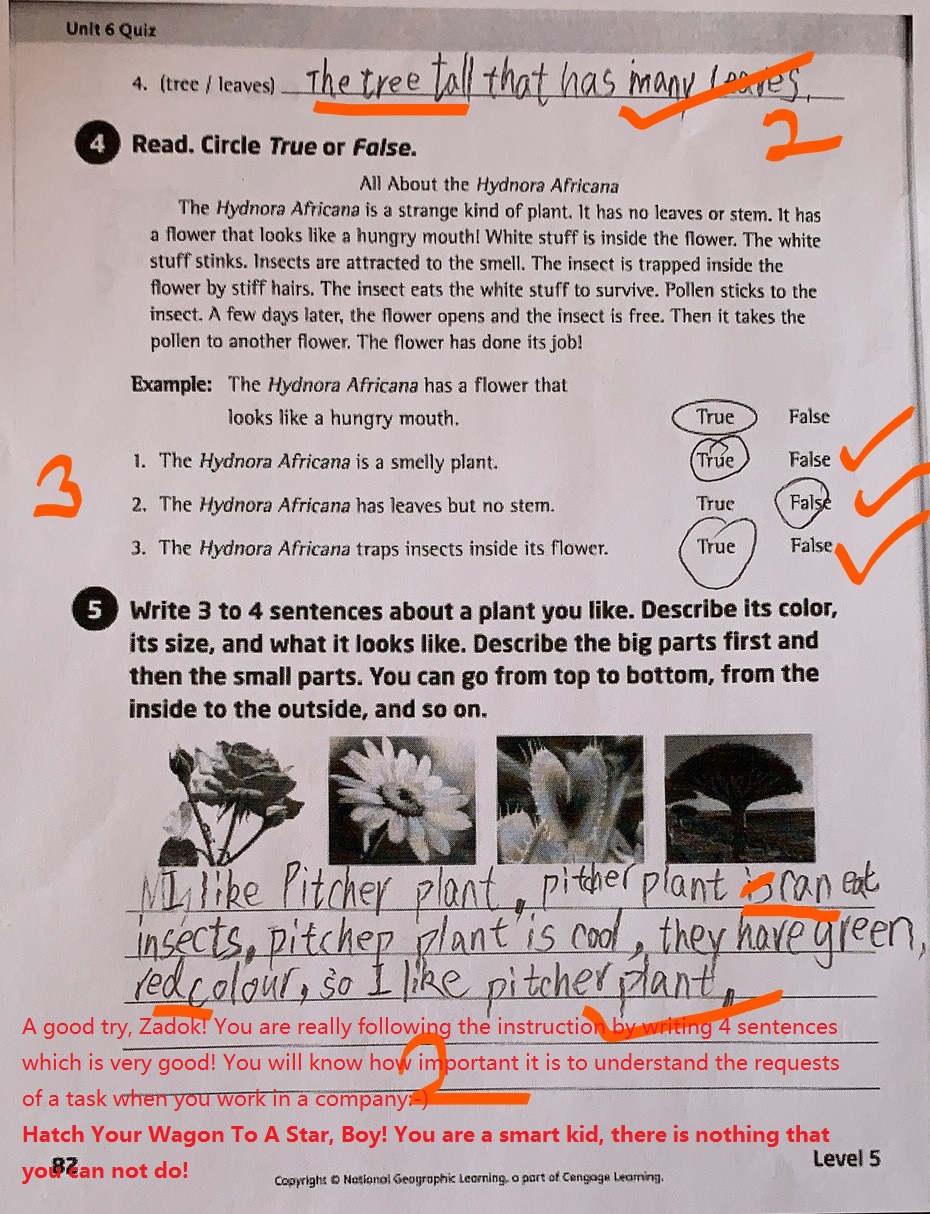 Unit 6 Quiz
4. (tree / leaves) The tree tall that has many leaves.
2
4 Read. Circle True or False.
All About the Hydnora Africana
The Hydnora Africana is a strange kind of plant. It has no leaves or stem. It has
a flower that looks like a hungry mouth! White stuff is inside the flower. The white
stuff stinks. Insects are attracted to the smell. The insect is trapped inside the
flower by stiff hairs. The insect eats the white stuff to survive. Pollen sticks to the
insect. A few days later, the flower opens and the insect is free. Then it takes the
pollen to another flower. The flower has done its job!
Example: The Hydnora Africana has a flower that
looks like a hungry mouth. True False
1. The Hydnora Africana is a smelly plant. True False
3
2. The Hydnora Africana has leaves but no stem. True False
3. The Hydnora Africana traps insects inside its flower. True False
5 Write 3 to 4 sentences about a plant you like. Describe its color,
its size, and what it looks like. Describe the big parts first and
then the small parts. You can go from top to bottom, from the
inside to the outside, and so on.
I like Pitcher plant, pitcher plant is can eat
insects, pitcher plant is cool, they have green,
red colour, so I like pitcher plant.
A good try, Zadok! You are really following the instruction by writing 4 sentences
which is very good! You will know how important it is to understand the requests
of a task when you work in a company:-)
2
Hatch Your Wagon To A Star, Boy! You are a smart kid, there is nothing that
you can not do!
82
Level 5
Copyright © National Geographic Learning, a part of Cengage Learning.